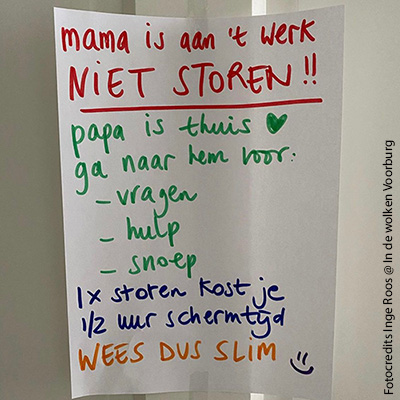 mama is aan 't werk
NIET STOREN!!
papa is thuis ♥
ga naar hem voor:
- vragen
- hulp
- snoep
1x storen kost je
1/2 uur schermtijd
WEES DUS SLIM
Fotocredits Inge Roos @ In de wolken Voorburg